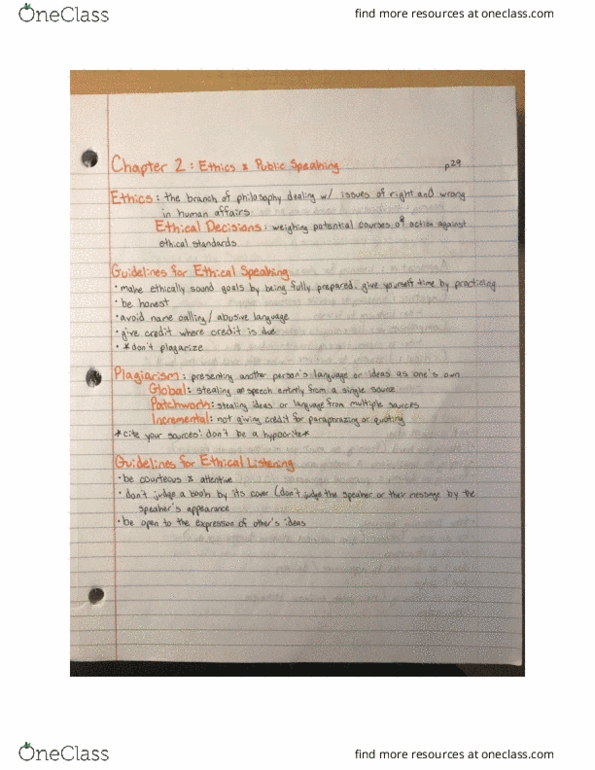 OneClass
find more resources at oneclass.com
Chapter 2 : Ethics & Public Speaking p29
Ethics : the branch of philosophy dealing w/ issues of right and wrong
in human affairs
Ethical Decisions : weighing potential courses of action against
ethical standards
Guidelines for Ethical Speaking
· make ethically sound goals by being fully prepared, give yourself time by practicing
· be honest
· avoid name calling / abusive language
· give credit where credit is due
· * don't plagarize
Plagiarism : presenting another person's language or ideas as one's own
Global : stealing a speech entirely from a single source
Patchwork : stealing ideas or language from multiple sources
Incremental : not giving credit for paraphrazing or quoting
*cite your sources! don't be a hypocrite*
Guidelines for Ethical Listening
· be courteous & attentive
· don't judge a book by its cover (don't judge the speaker or their message by the
speaker's appearance
· be open to the expression of other's ideas
OneClass
find more resources at oneclass.com